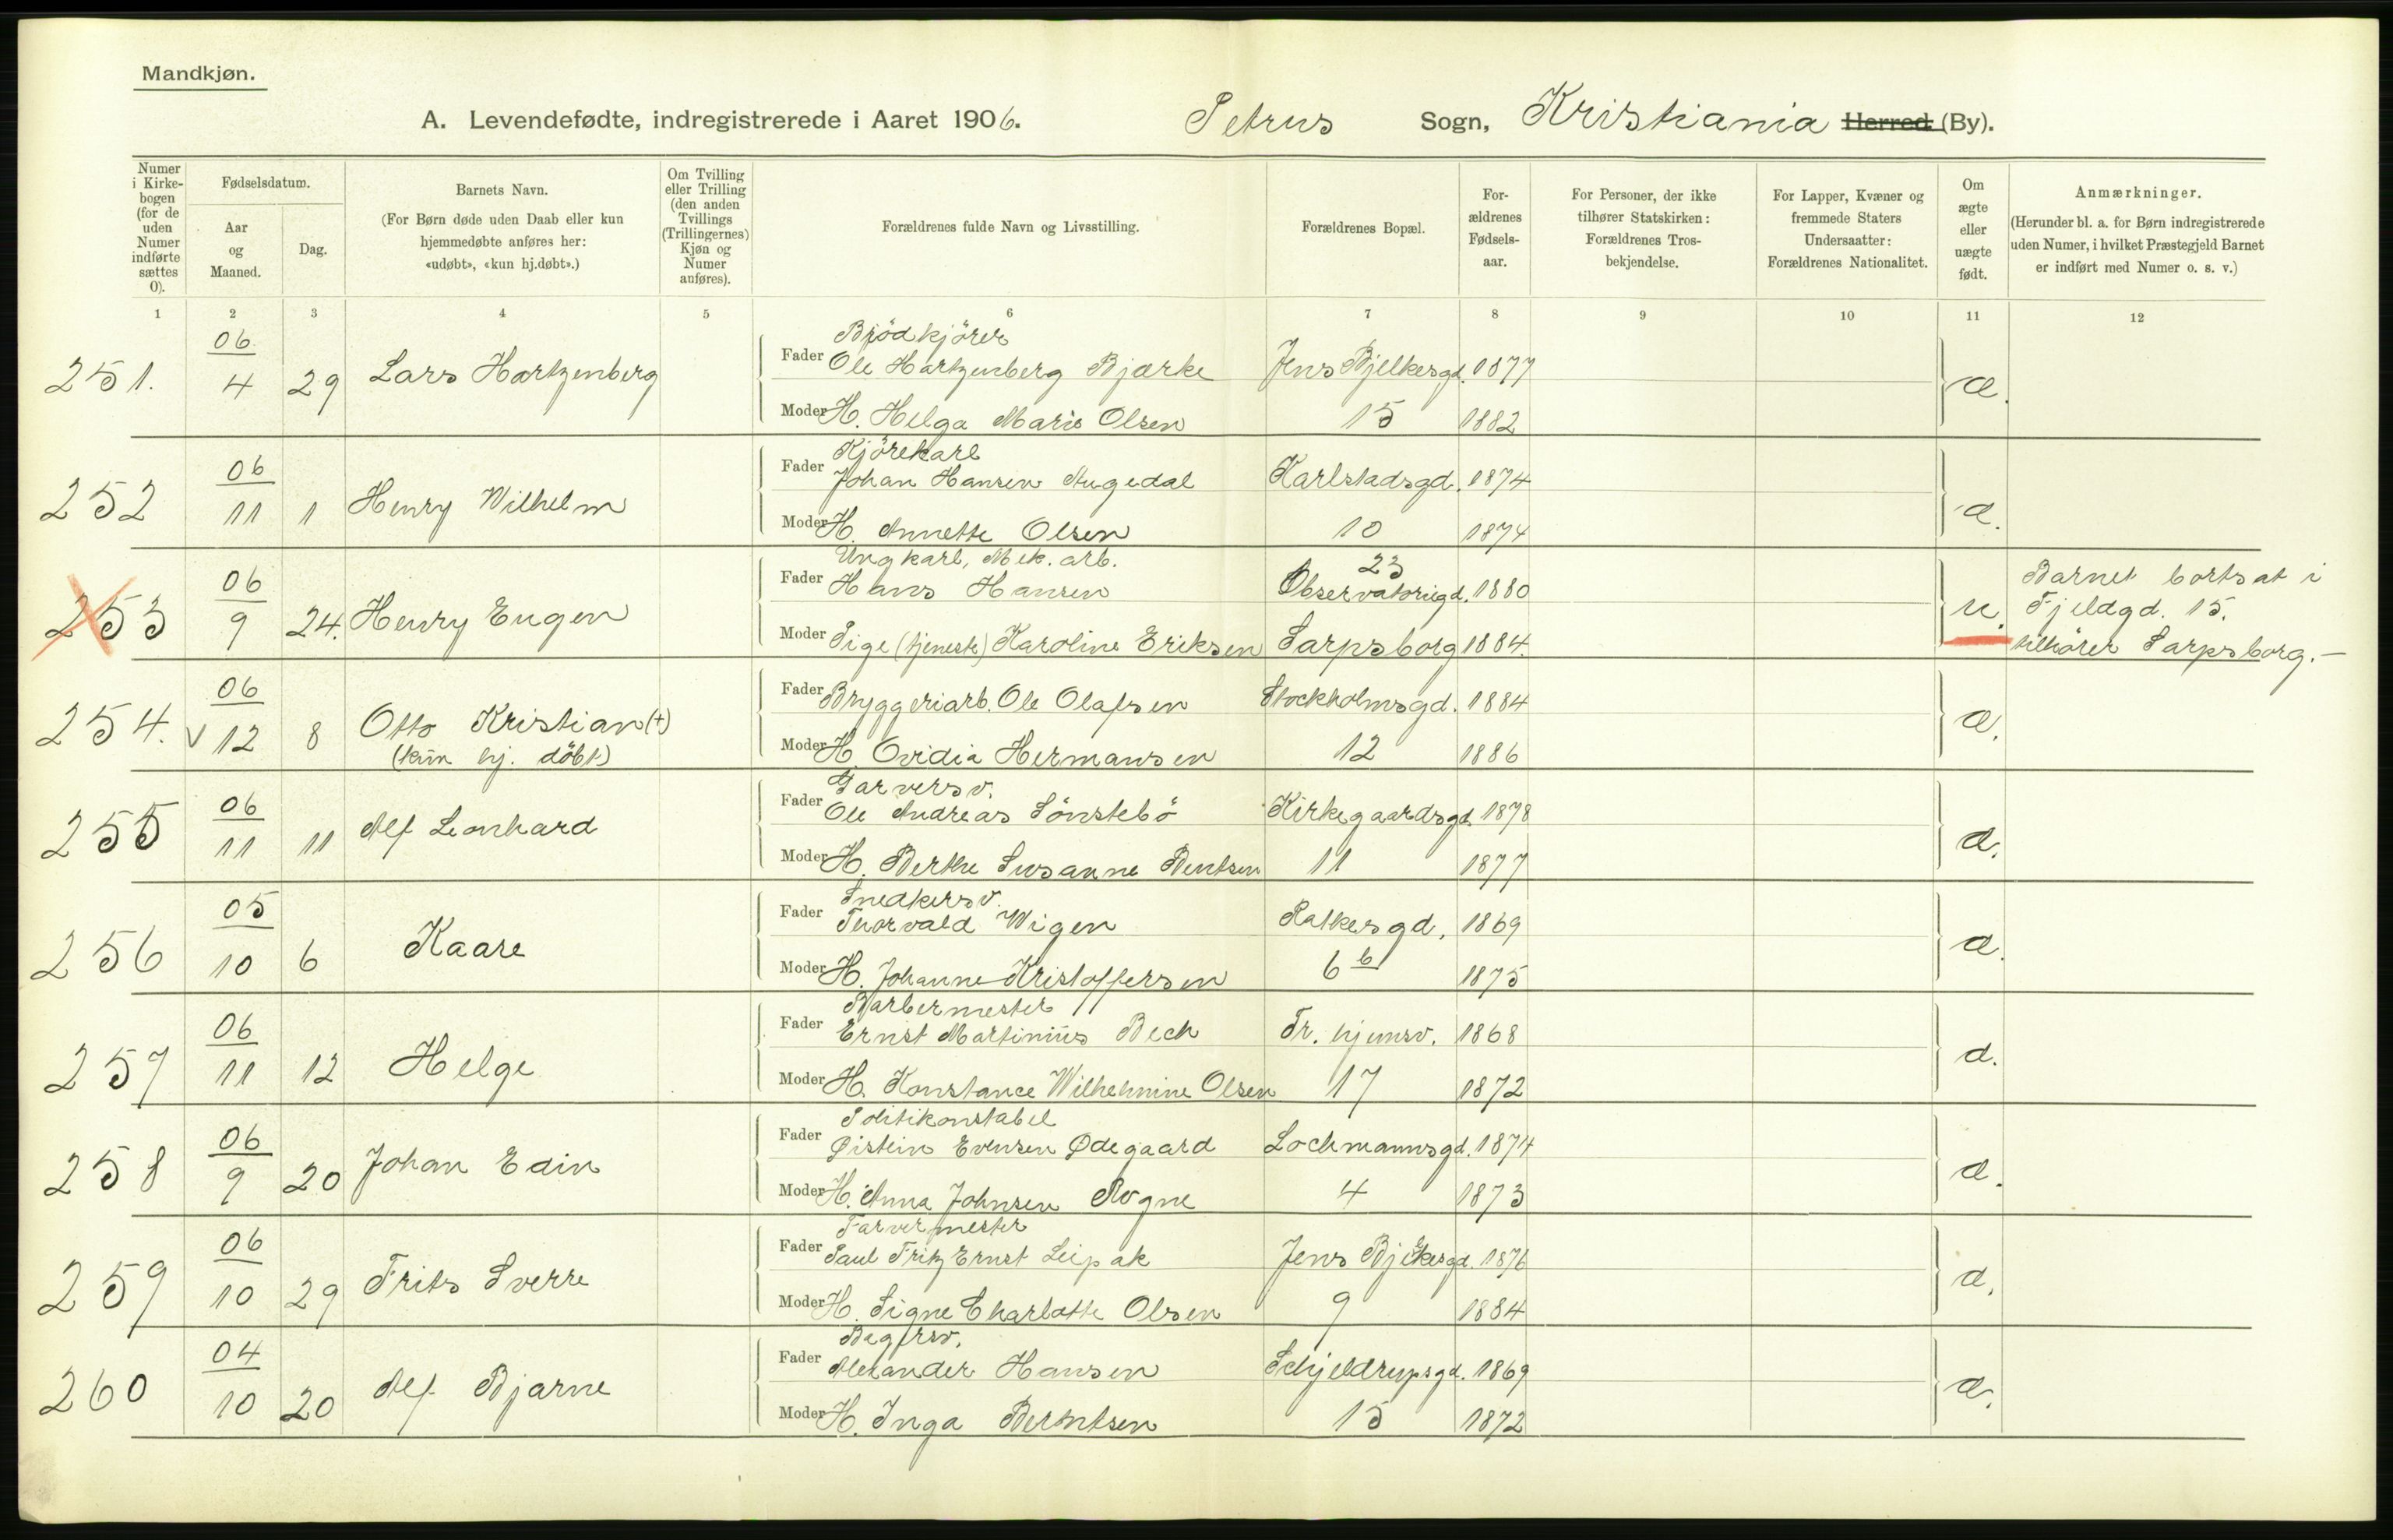 Mandkjøn.
A. Levendefødte, indregistrerede i Aaret 1906. Petrus Sogn, Kristiania Herred (By).
Numer i Kirkebogen (for de uden Numer indførte sættes 0).
Fødselsdatum.
Aar og Maaned.
Dag.
Barnets Navn.
(For Børn døde uden Daab eller kun hjemmedøbte anføres her: «udøbt», «kun hj.døbt».)
Om Tvilling eller Trilling (den anden Tvillings (Trillingernes) Kjøn og Numer anføres).
Forældrenes fulde Navn og Livsstilling.
Forældrenes Bopæl.
Forældrenes Fødselsaar.
For Personer, der ikke tilhører Statskirken: Forældrenes Trosbekjendelse.
For Lapper, Kvæner og fremmede Staters Undersaatter: Forældrenes Nationalitet.
Om ægte eller uægte født.
Anmærkninger.
(Herunder bl. a. for Børn indregistrerede uden Numer, i hvilket Præstegjeld Barnet er indført med Numer o. s. v.)
1 2 3 4 5 6 7 8 9 10 11 12
Brødkjörer
251. 06/4 29 Lars Hartzenberg Fader Ole Hartzenberg Bjærke Jens Bjelkesgd. 1877 æ.
Moder H. Helga Marie Olsen 15 1882
Kjörekarl
252 06/11 1 Henry Wilhelm Fader Johan Hansen Augedal Karlstadsgd. 1874 æ.
Moder H. Annette Olsen 10 1874
Ungkarl, Mek. arb. 23
253 06/9 24. Henry Eugen Fader Hans Hansen Observatoriegd. 1880 u. Barnet bortsat i Fjeldgd. 15.
Moder Pige (tjeneste) Karoline Eriksen Sarpsborg 1884. tilhörer Sarpsborg.-
254. v 06/12 8 Otto Kristian (+) Fader Bryggeriarb. Ole Olafsen Stockholmsgd. 1884 æ.
(kun hj. döbt) Moder H. Ovidia Hermansen 12 1886
Garversv.
255 06/11 11 Alf Leonhard Fader Ole Andreas Sönstebö Kirkegaardsgd. 1878 æ.
Moder H. Berthe Susanne Bentsen 11 1877
Snedkersv.
256 05/10 6 Kaare Fader Thorvald Wigen Ratkesgd. 1869 æ.
Moder H. Johanne Kristoffersen 6 b 1875
Barbermester
257 06/11 12 Helge Fader Ernst Martinius Bech Tr. hjemsv. 1868 æ.
Moder H. Konstance Wilhelmine Olsen 17 1872
Politikonstabel
258 06/9 20 Johan Edin Fader Øistein Evensen Ødegaard Lochmannsgd. 1874 æ.
Moder H. Anna Johnsen Rogne 4 1873
Farvermester
259 06/10 29 Frits Sverre Fader Paul Fritz Ernst Leipak Jens Bjelkesgd. 1876 æ.
Moder H. Signe Charlotte Olsen 9 1884
Bagersv.
260 04/10 20 Alf Bjarne Fader Alexander Hansen Schjeldrupsgd. 1869 æ.
Moder H. Inga Berntsen 15 1872